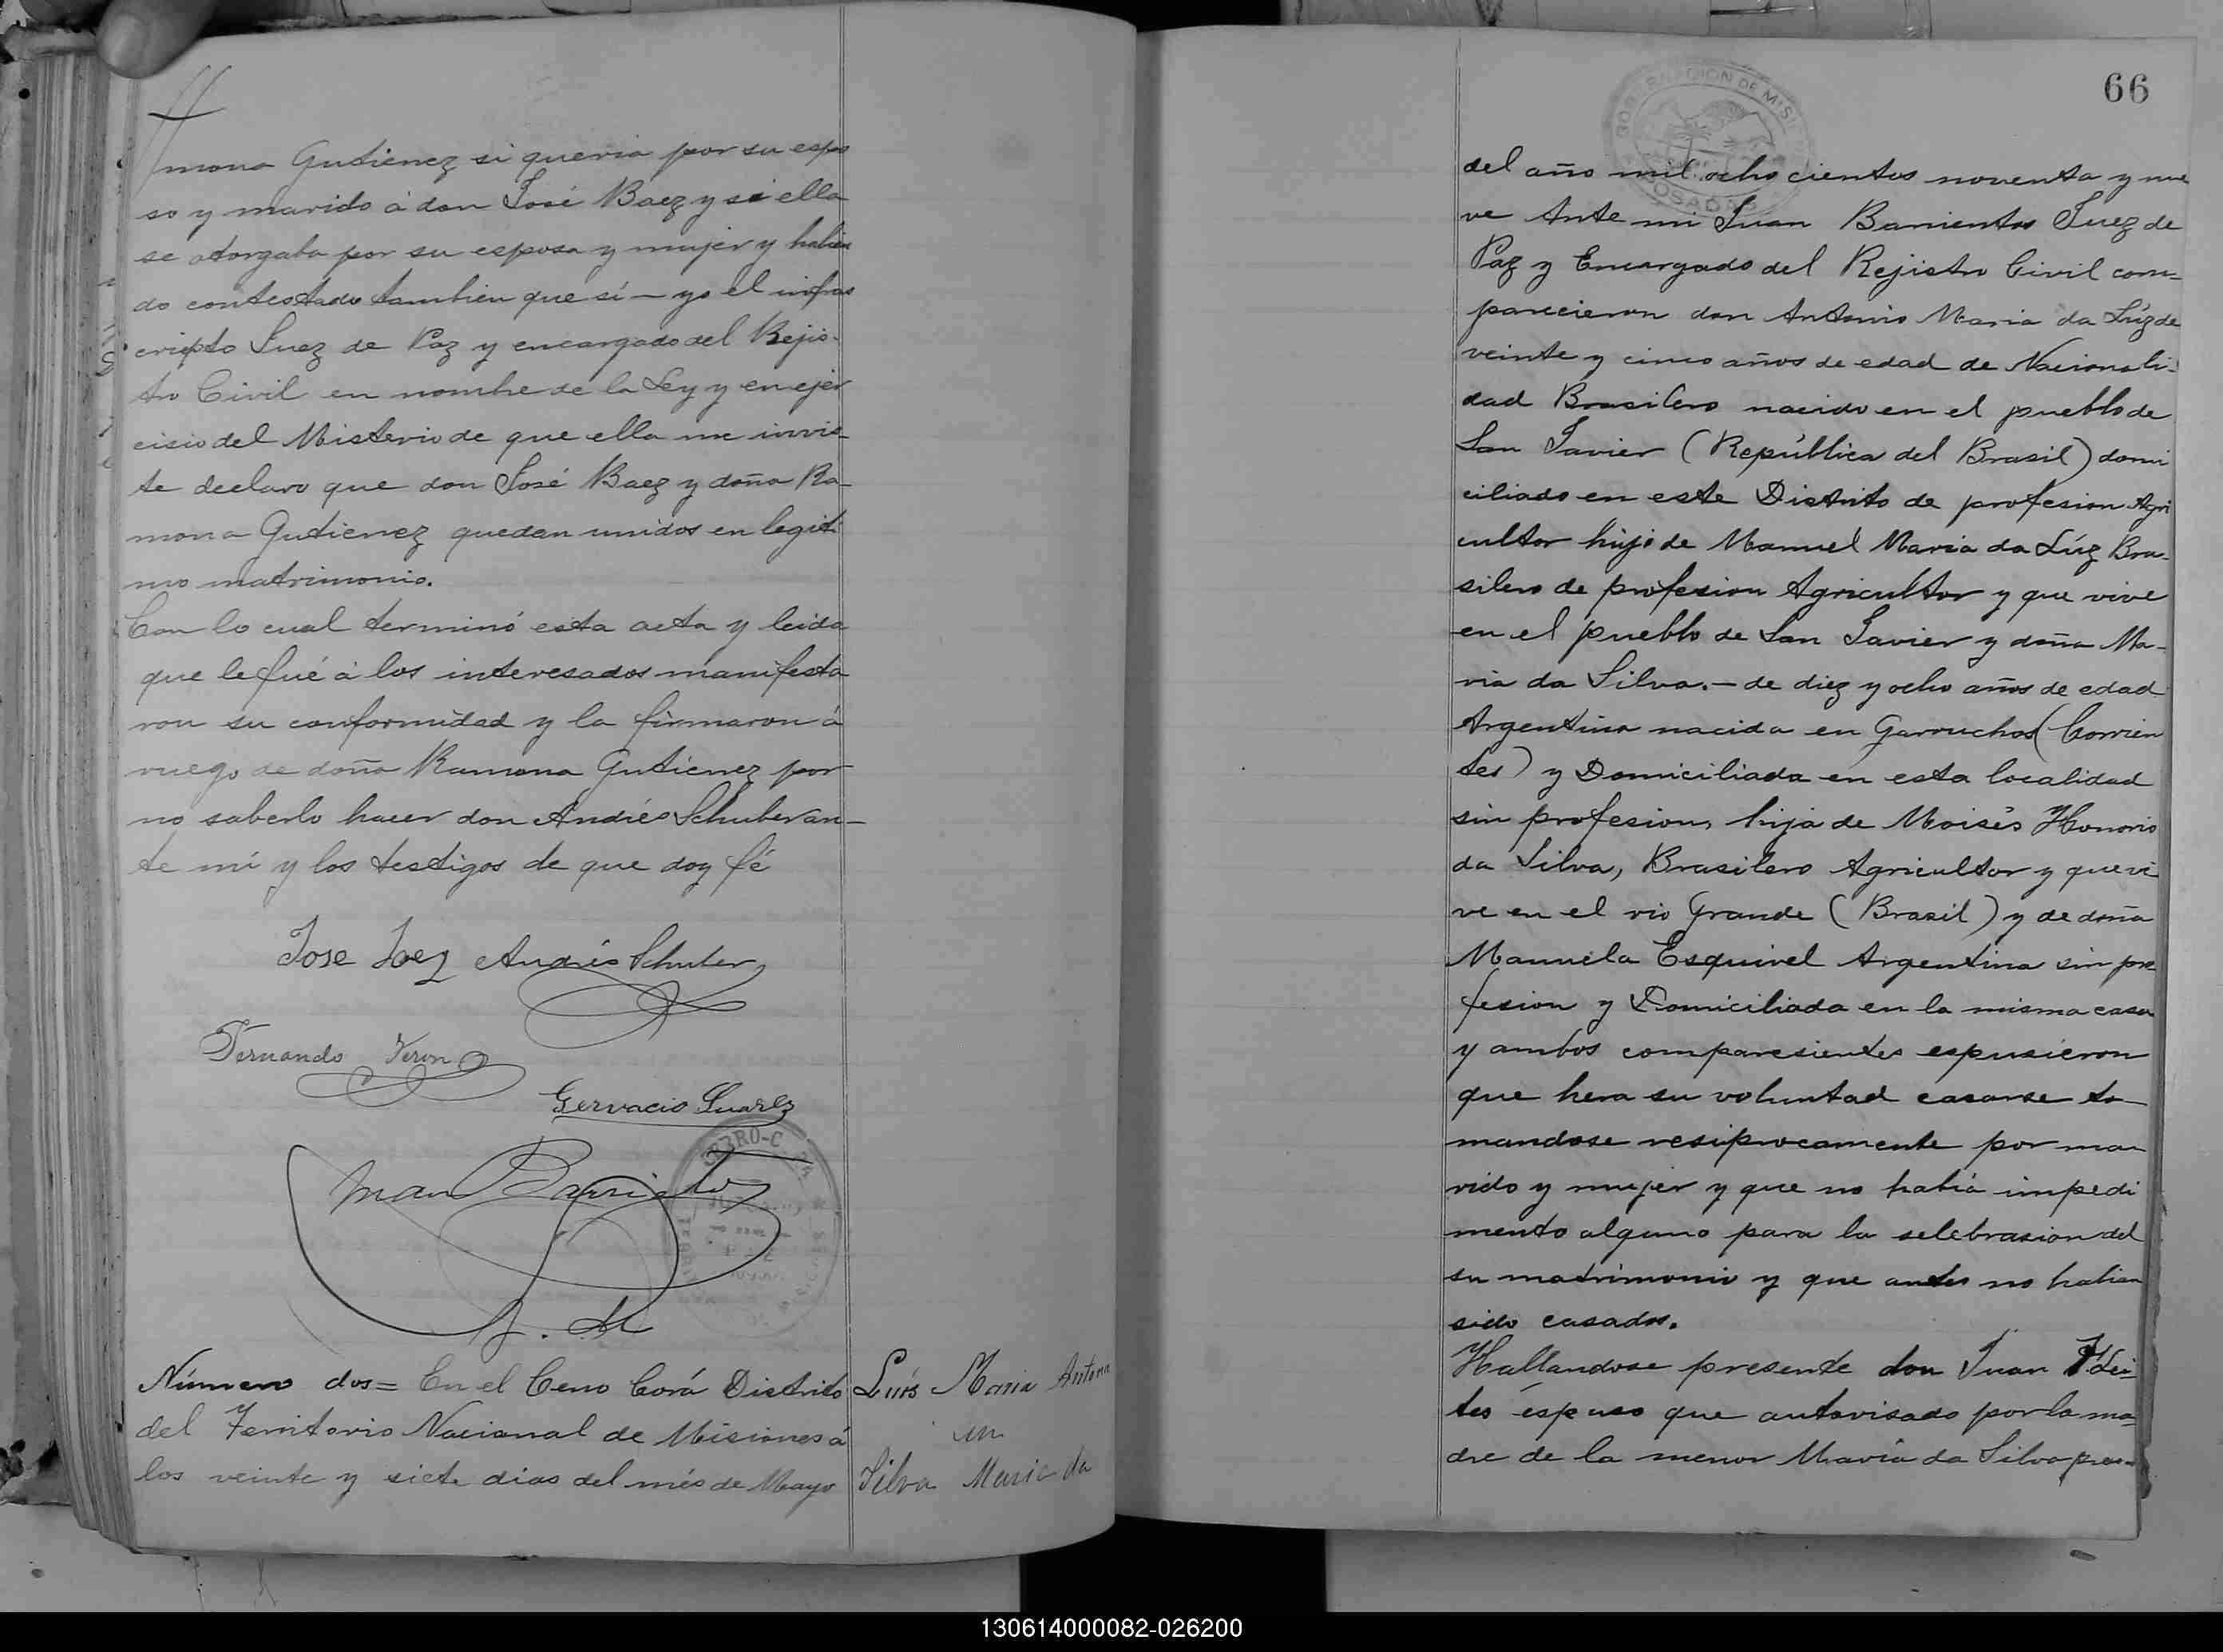 mona Gutierrez si queria por su espo
so y marido á don José Baez y si ella
se otorgaba por su esposa y mujer y habien
do contestado tambien que sí — yo el infras
cripto Juez de Paz y encargado del Rejis-
tro Civil en nombre de la Ley y en ejer
cisio del Misterio de que ella me invis-
te declaro que don José Baez y doña Ra-
mona Gutierrez quedan unidos en legiti
mo matrimonio.
Con lo cual terminó esta acta y leida
que le fué á los interesados manifesta
ron su conformidad y la firmaron á
ruego de doña Ramona Gutierrez por
no saberlo hacer don Andrés Schuber an-
te mí y los testigos de que doy fé
Jose Andrés Schuber
Fernando Veron
Gervacio Suarez
Juan Barrientos
Número dos = En el Cerro Corá Distrito
del Territorio Nacional de Misiones á
los veinte y siete dias del més de Mayo
Luís Maria Antonio
Silva Maria da
66
GOBERNACION DE MISIONES
POSADAS
del año mil ocho cientos noventa y nue
ve Ante mi Juan Barrientos Juez de
Paz y Encargado del Rejistro Civil com-
parecieron don Antonio Maria da Lúz de
veinte y cinco años de edad de Nacionali-
dad Brasilero nacido en el pueblo de
San Javier (República del Brasil) domi
ciliado en este Distrito de profesion Agri
cultor hijo de Manuel Maria da Lúz Bra-
silero de profesion Agricultor y que vive
en el pueblo de San Javier y doña Ma-
ria da Silva. — de diez y ocho años de edad
Argentina nacida en Garruchos (Corrien
tes) y Domiciliada en esta localidad
sin profesion, hija de Moisés Honorio
da Silva, Brasilero Agricultor y que vi
ve en el rio Grande (Brasil) y de doña
Manuela Esquivel Argentina sin pro
fesion y Domiciliada en la misma casa
y ambos comparesientes espusieron
que hera su voluntad casarse to-
mandose resiprocamente por ma-
rido y mujer y que no había impedi
mento alguno para la selebrasion del
su matrimonio y que antes no habian
sido casados.
Hallandose presente don Juan Flei-
tes éspuso que autorisado por la ma-
dre de la menor María da Silva
130614000082-026200